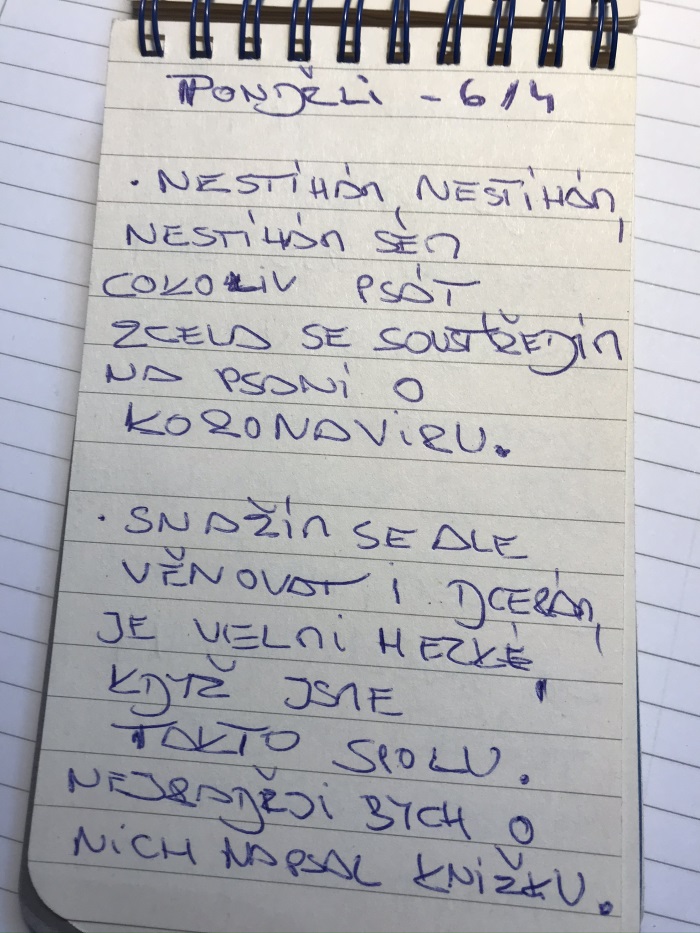 PONDĚLI - 6/4
· NESTÍHÁM, NESTÍHÁM,
NESTÍHÁM SEM
COKOLIV PSÁT
ZCELA SE SOUSTŘEDÍM
NA PSANÍ O
KORONAVIRU.
· SNAŽÍM SE ALE
VĚNOVAT I DCERÁM,
JE VELMI HEZKÉ,
KDYŽ JSME
TAKTO SPOLU.
NEJRADĚJI BYCH O
NICH NAPSAL KNÍŽKU.